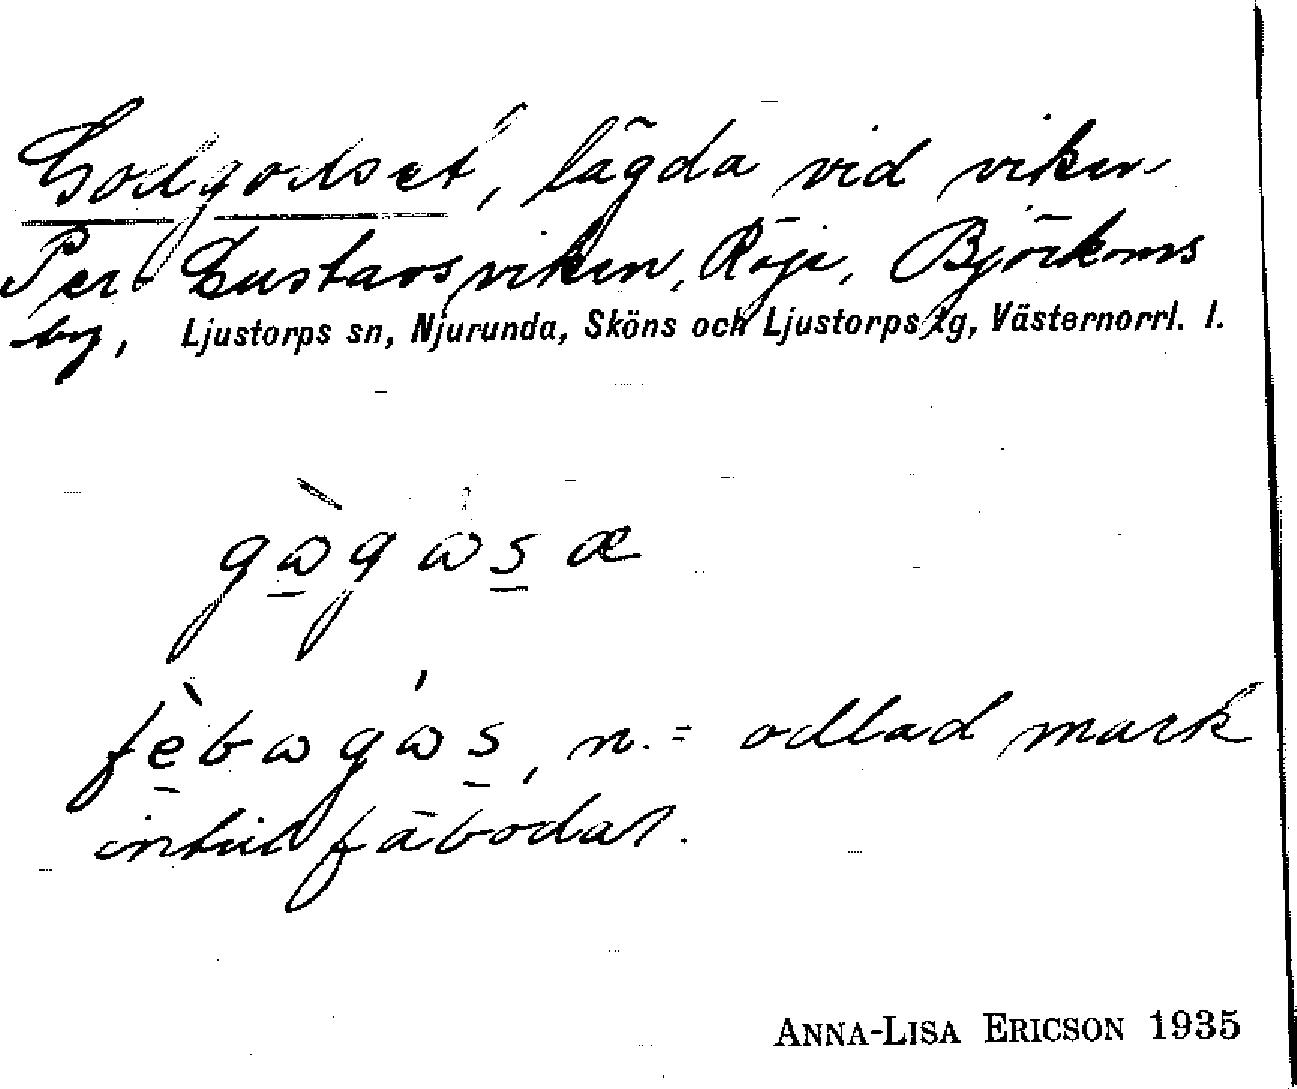 Godgodset, lägda vid viken
Per Gustavsviken, Röje, Björkoms
by, Ljustorps sn, Njurunda, Sköns och Ljustorps tg, Västernorrl. l.
gὼgώsæ
fèbωgώs, n. = odlad mark
intill fäbodar.
ANNA-LISA ERICSON 1935